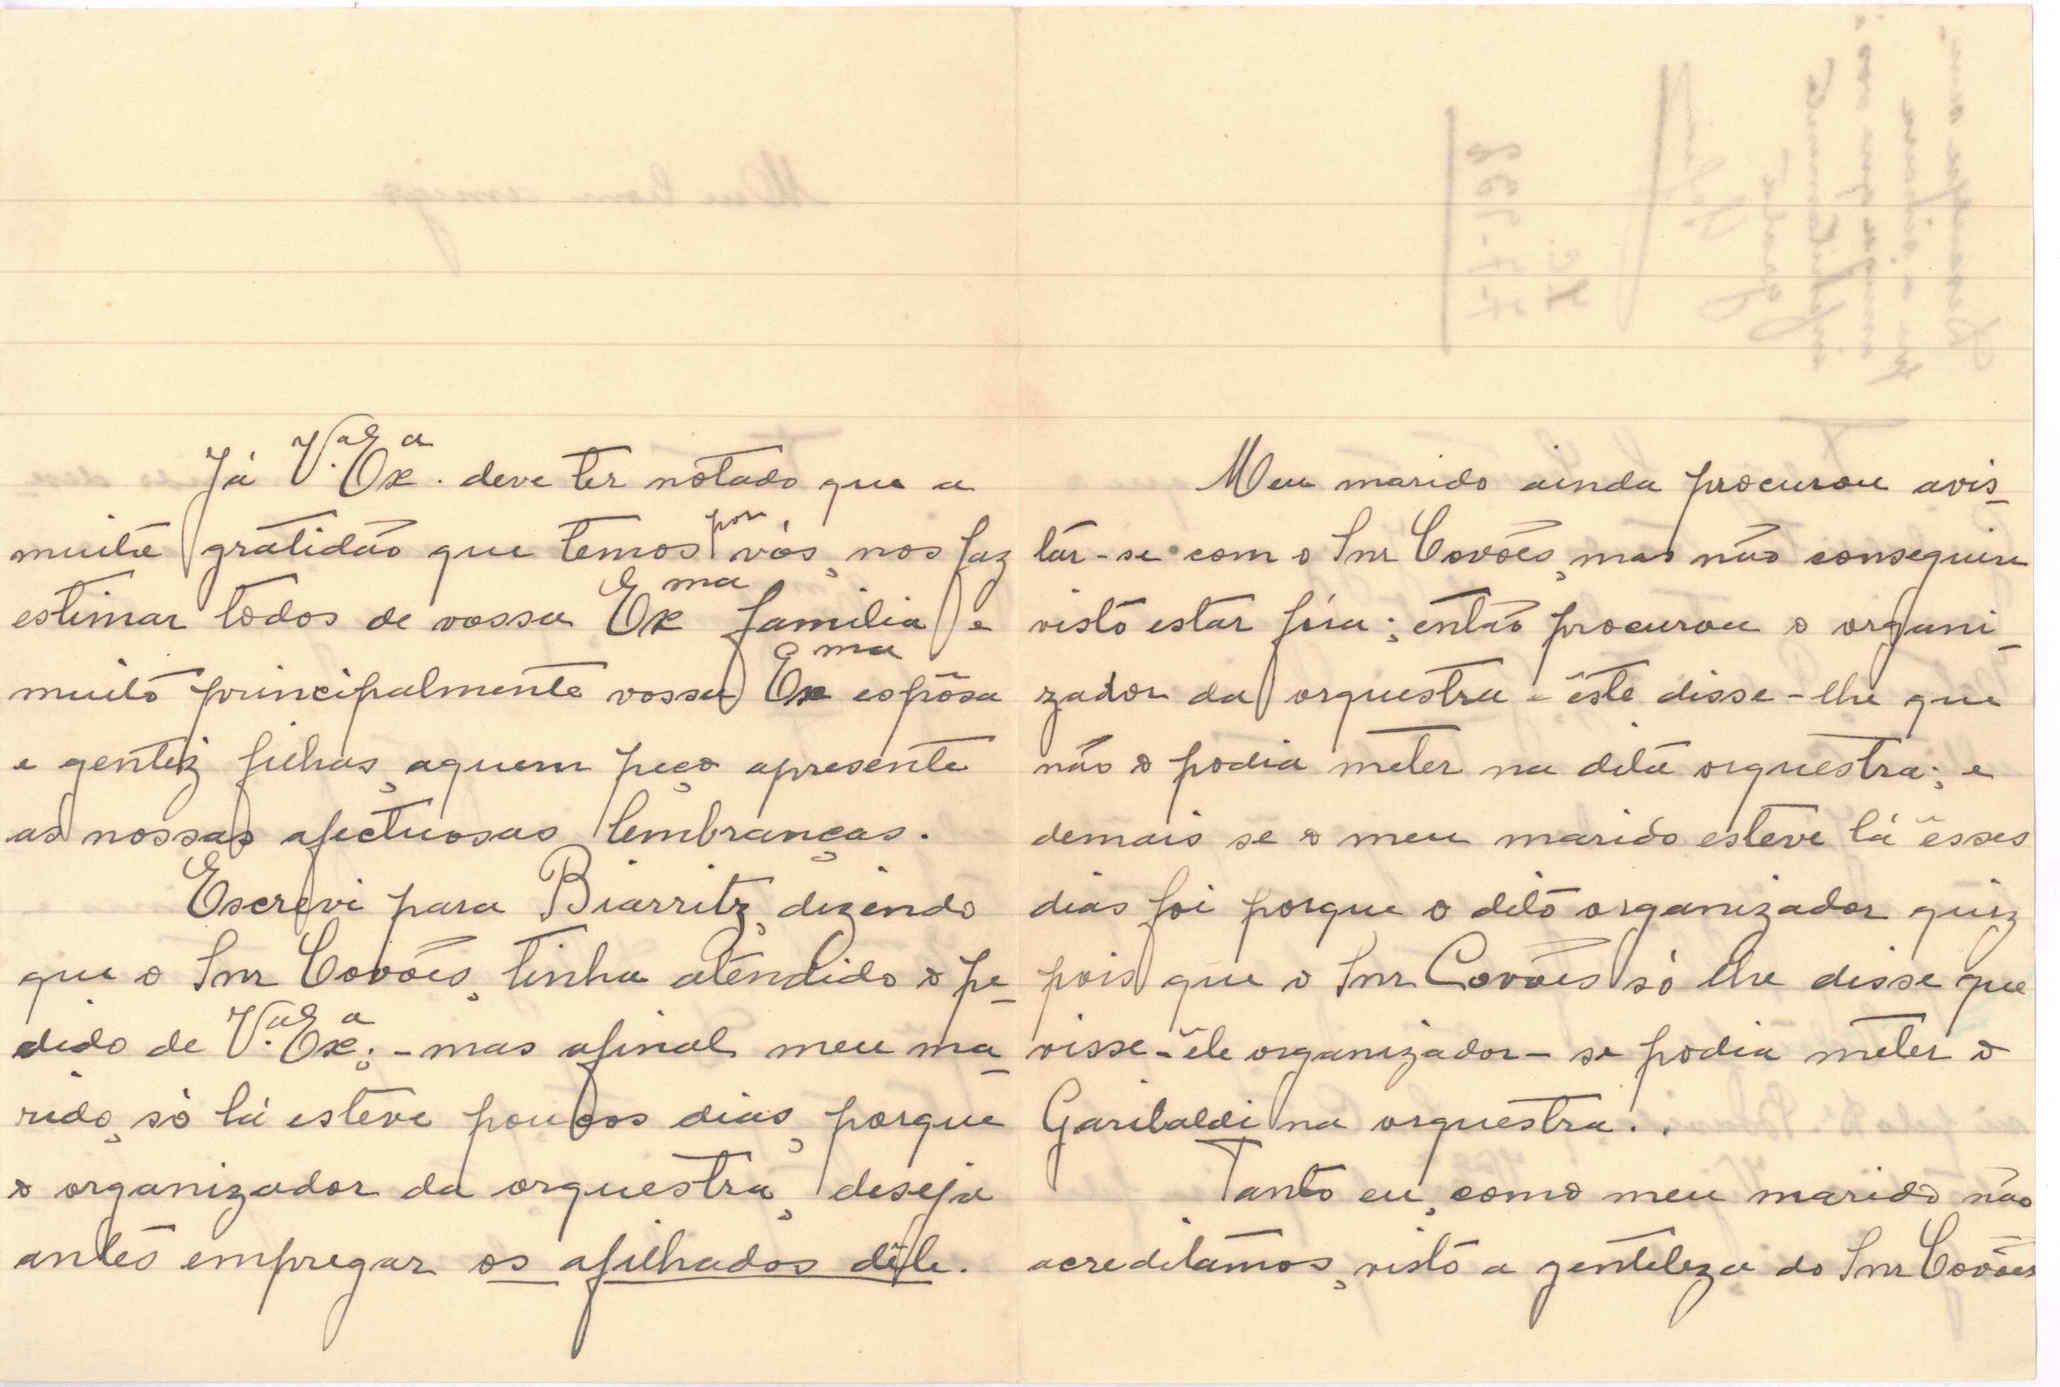 Já V.ª Ex.ª deve ter notado que a
muita gratidão que temos por vós, nos faz
estimar todos de vossa Ex.ma familia e
muito principalmente vossa Ex.ma espôsa
e gentiz filhas, aquem peço apresente
as nossas afectuosas lembranças.
Escrevi para Biarritz, dizendo
que o Snr Covões, tinha atendido o pe-
dido de V.ª Ex.ª; - mas afinal meu ma-
rido, só lá esteve poucos dias, porque
o organizador da orquestra, deseja
antes empregar os afilhados dêle.
Meu marido ainda procurou avis-
tar-se com o Snr Covões, mas não conseguiu
visto estar fóra; então procurou o organi-
zador da orquestra e êste disse-lhe que
não o podia meter na dita orquestra; e
demais se o meu marido esteve lá êsses
dias foi porque o dito organizador quiz
pois que o Snr Covões só lhe disse que
visse - êle organizador - se podia meter o
Garibaldi na orquestra..
Tanto eu, como meu marido não
acreditâmos, visto a gentileza do Snr Covões